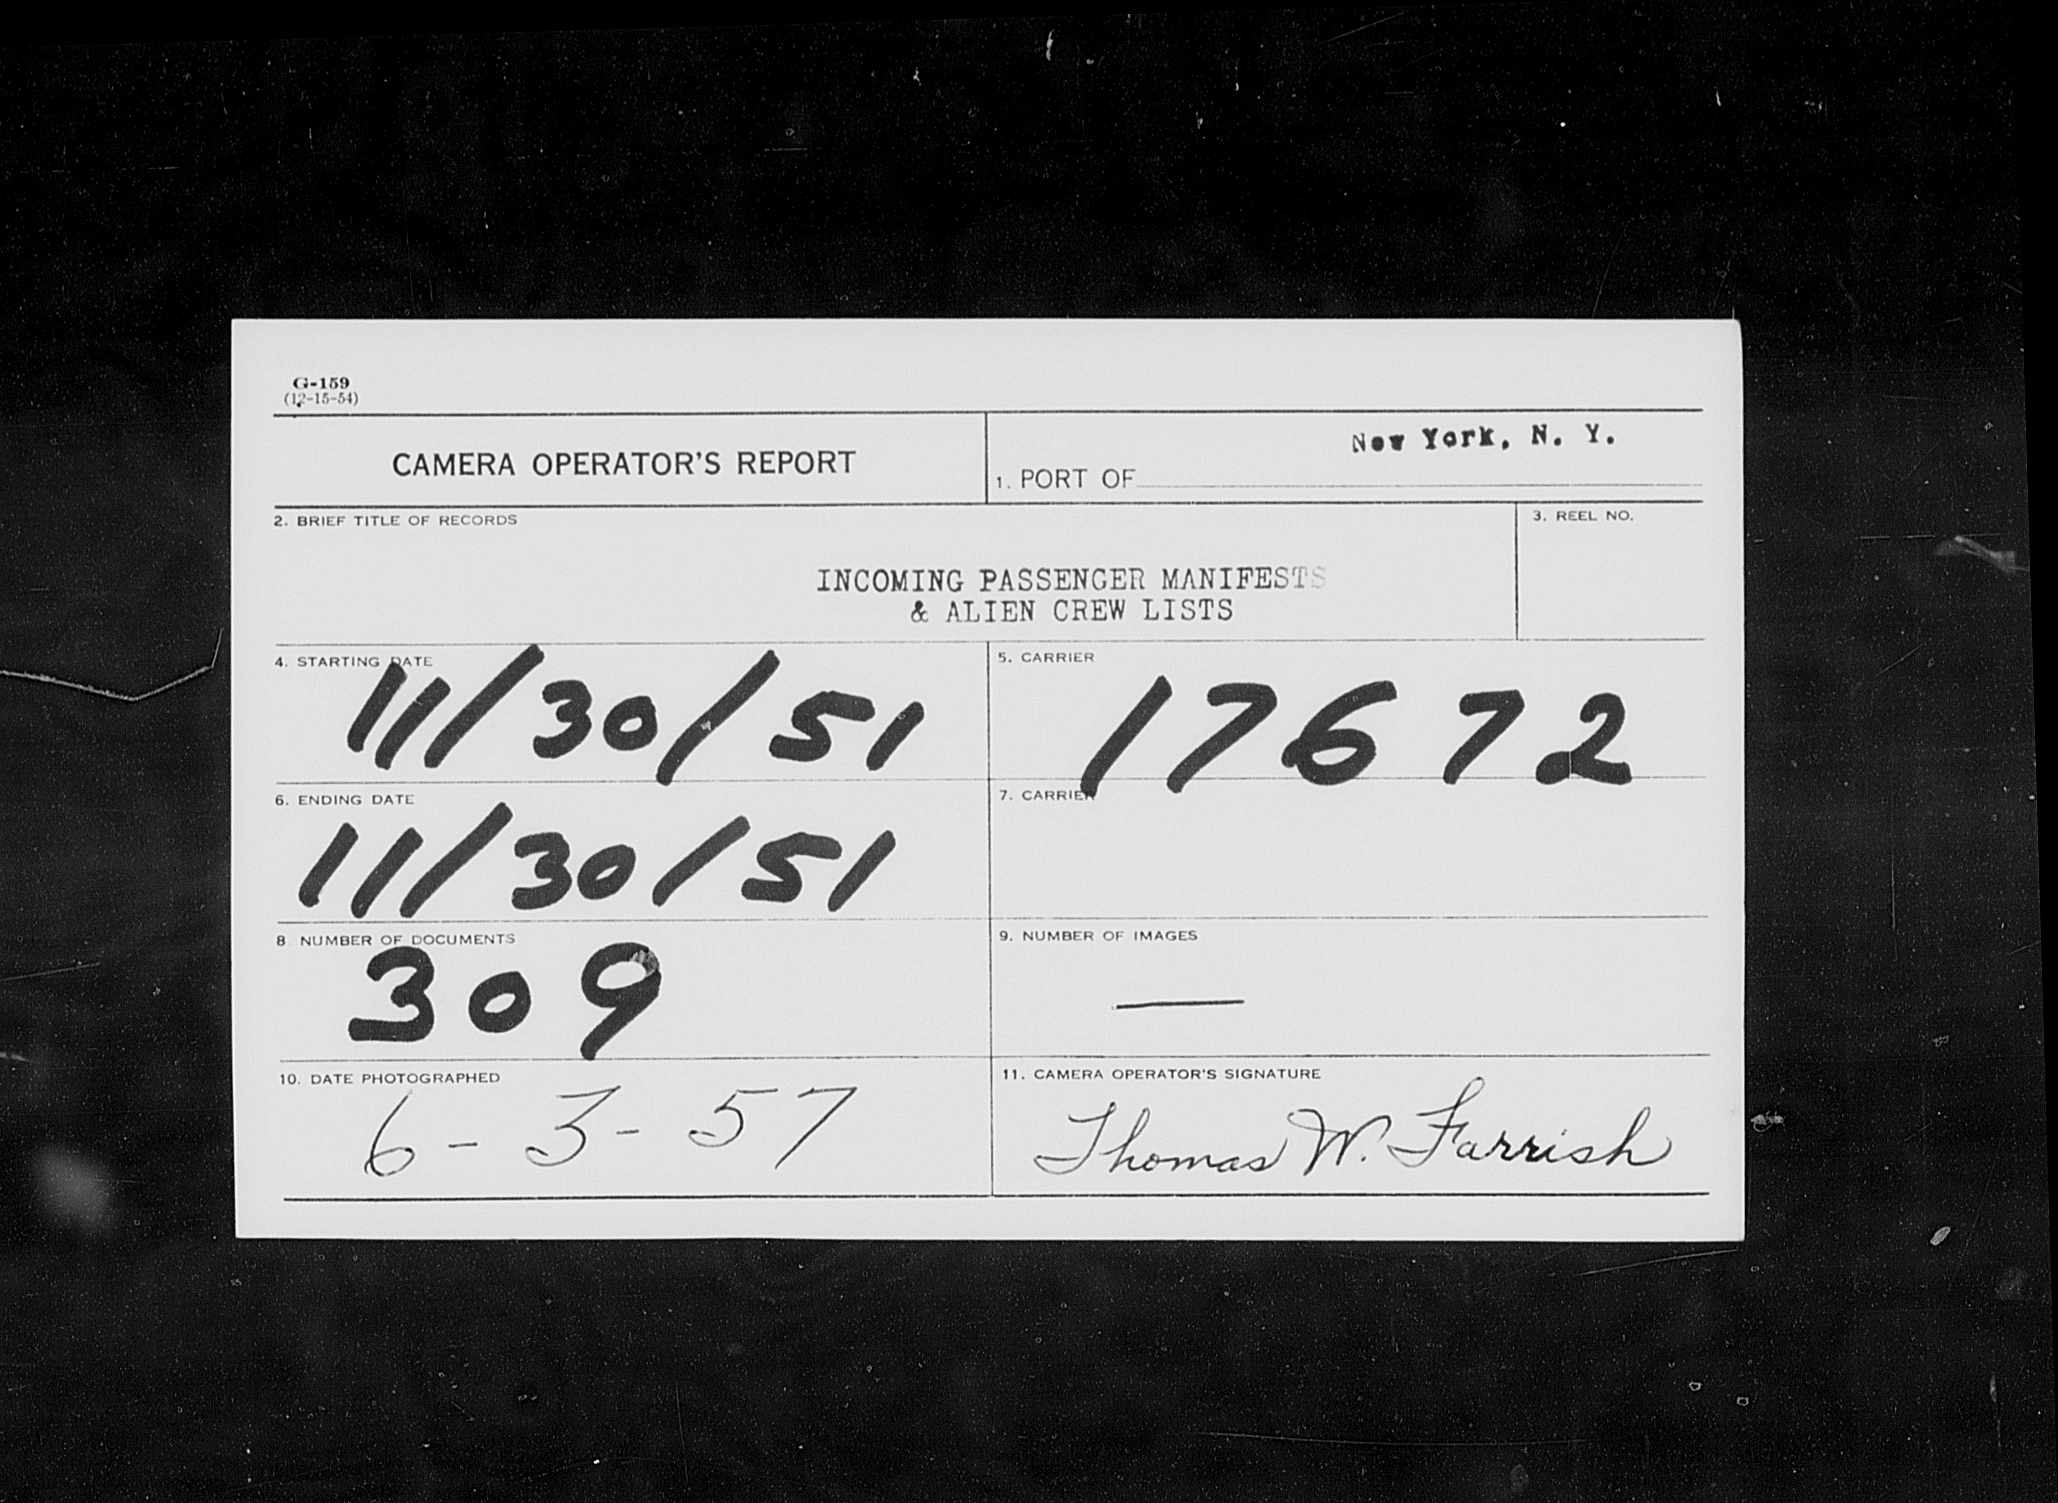 G-159
(12-15-54)
CAMERA OPERATOR'S REPORT
New York, N. Y.
1. PORT OF
2. BRIEF TITLE OF RECORDS
3. REEL NO.
INCOMING PASSENGER MANIFESTS
& ALIEN CREW LISTS
4. STARTING DATE
11/30/51
5. CARRIER
17672
6. ENDING DATE
11/30/51
7. CARRIER
8 NUMBER OF DOCUMENTS
309
9. NUMBER OF IMAGES
—
10. DATE PHOTOGRAPHED
6-3-57
11. CAMERA OPERATOR'S SIGNATURE
Thomas W. Farrish